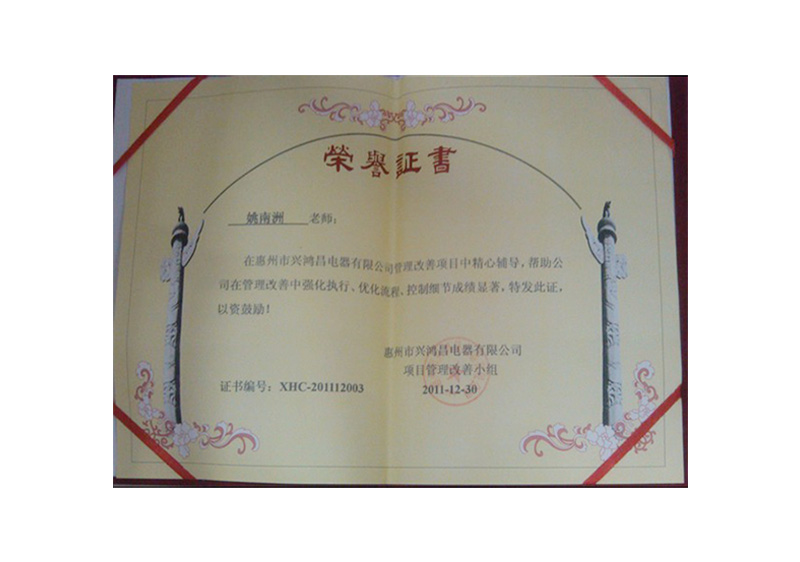 榮譽証書
姚南洲 老师：
在惠州市兴鸿昌电器有限公司管理改善项目中精心辅导，帮助公
司在管理改善中强化执行、优化流程、控制细节成绩显著，特发此证，
以资鼓励！
惠州市兴鸿昌电器有限公司
项目管理改善小组
证书编号：XHC-201112003
2011-12-30